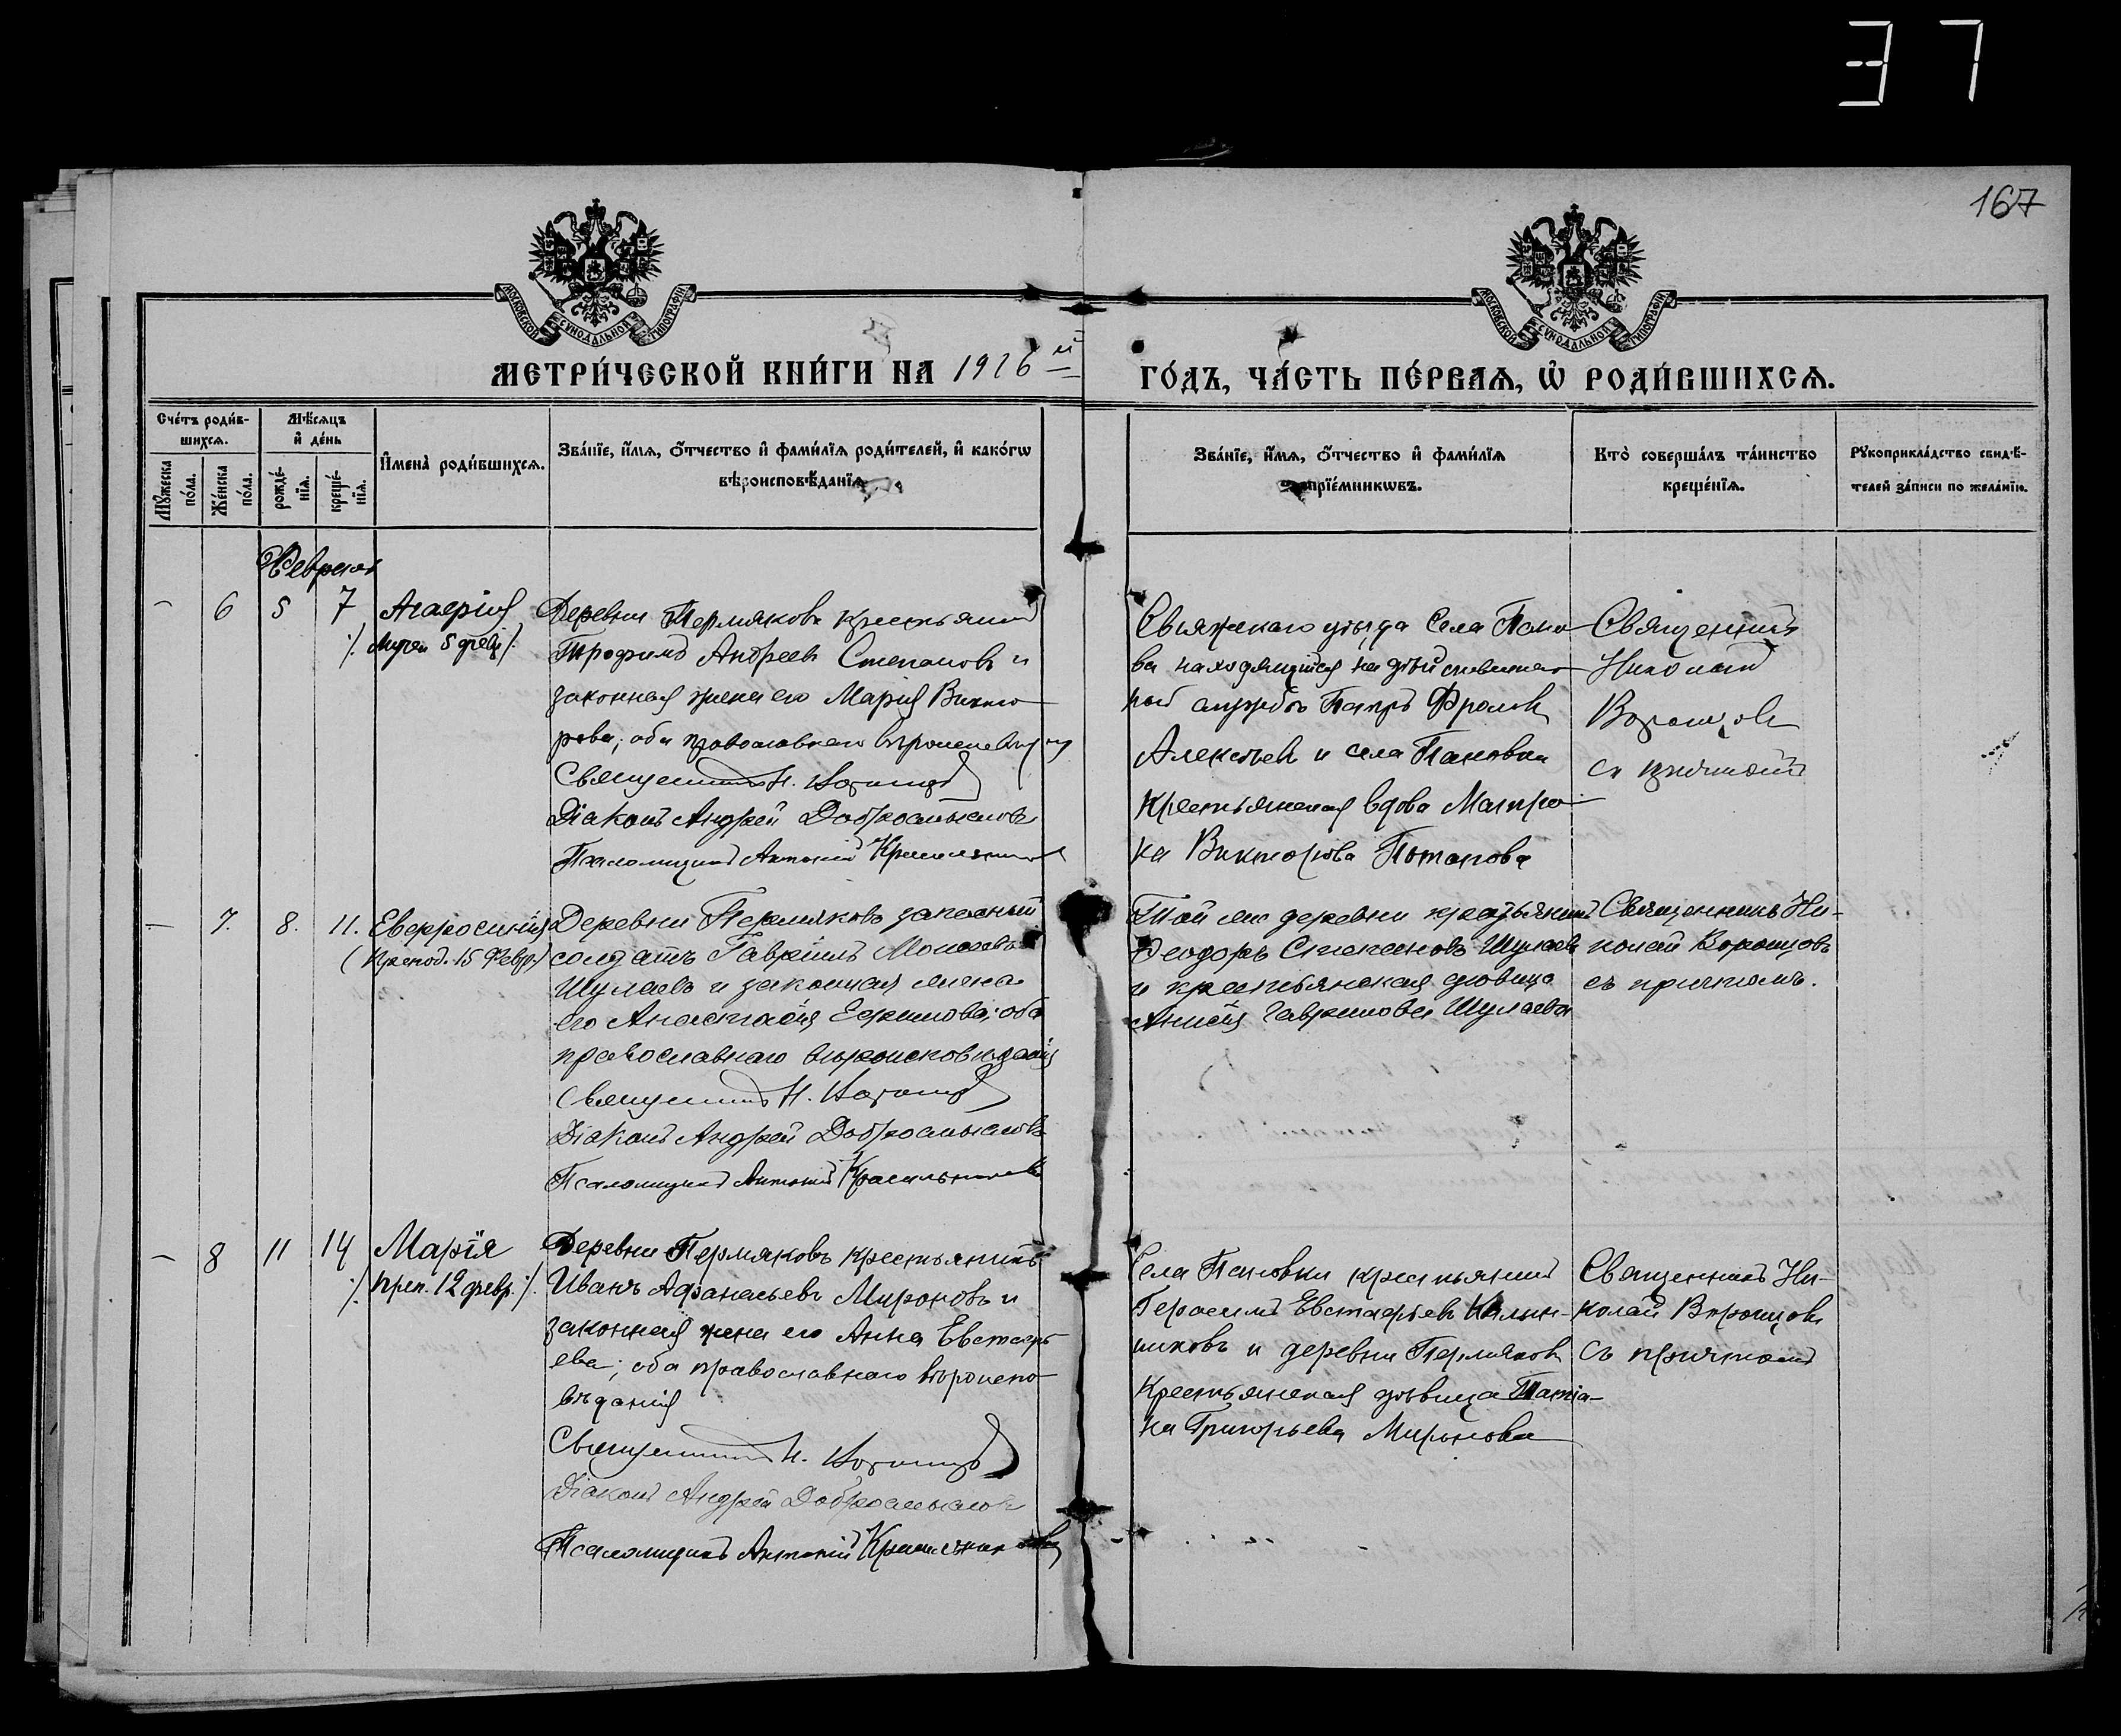 37
167
МОСКОВСКОЙ СѴНОДАЛЬНОЙ ТИПОГРАФІИ
МОСКОВСКОЙ СѴНОДАЛЬНОЙ ТИПОГРАФІИ
МЕТРИ́ЧЕСКОЙ КНИ́ГИ НА 1916 й
ГО́ДЪ, ЧА́СТЬ ПЕ́РВАѦ, Ѽ РОДИ́ВШИХСѦ.
Сче́тъ роди́в-
шихсѧ.
Мꙋ́жеска по́ла.
Же́нска по́ла.
Мѣ́сѧцъ
и҆ де́нь
рожде́-
нїѧ.
креще́-
нїѧ.
И҆мена̀ роди́вшихсѧ.
Зва́нїе, и҆́мѧ, ѻ҆́тчество и҆ фами́лїѧ роди́телей, и҆ како́гѡ
вѣроисповѣ́данїѧ
Зва́нїе, и҆́мѧ, ѻ҆́тчество и҆ фами́лїѧ
прїе́мникѡвъ.
Кто̀ соверша́лъ та́инство
креще́нїѧ.
Рꙋкоприкла́дство свидѣ́-
телей за́писи по жела́нїю.
Февраля
- 6 5 7
Агаѳія
Деревни Пермякова крестьянинъ
Трофимъ Андреевъ Степановъ и
законная жена его Марія Викто
рова; оба православнаго
Священникъ Н. Воронцовъ
Діаконъ Андрей Добросмысловъ
Псаломщикъ Антоній Красильниковъ
Свіяжскаго уѣзда Села Пано
ва находящійся на дѣйствитель
ной службѣ Петръ Фроловъ
Алексѣевъ и села Пановки
Крестьянская вдова Матро
на Викторова Потапова
Священникъ
Николай
Воронцовъ
съ причтомъ
- 7. 8. 11.
Евфросинія
(Препод. 15 Февр.)
Деревни Пермяковъ запасный
солдатъ Гавріилъ Моисеевъ
Шулаевъ и законная жена
его Анастасія Ефимова; оба
православнаго вѣроисповѣданія
Священникъ Н. Воронцовъ
Діаконъ Андрей Добросмысловъ
Псаломщикъ Антоній Красильниковъ
Той же деревни крестьянинъ
Ѳеодоръ Степановъ Шулаевъ
и крестьянская дѣвица
Гаврилова Шулаева
Священникъ Ни-
колай Воронцовъ
съ причтомъ.
- 8 11 14
Марія
./. преп. 12 февр. ./.
Деревни Пермяковъ крестьянинъ
Иванъ Аѳанасьевъ Мироновъ и
законная жена его Анна Евстафь
ева; оба православнаго вѣроиспо
вѣданія
Священникъ Н. Воронцовъ
Діаконъ Андрей Добросмысловъ
Псаломщикъ Антоній Красильниковъ
Села Пановки крестьянинъ
Герасимъ Евстафьевъ Калин-
никовъ и деревни Пермяковъ
Крестьянская дѣвица Татіа-
на Григорьева Миронова
Священникъ Ни-
колай Воронцовъ
съ причтомъ